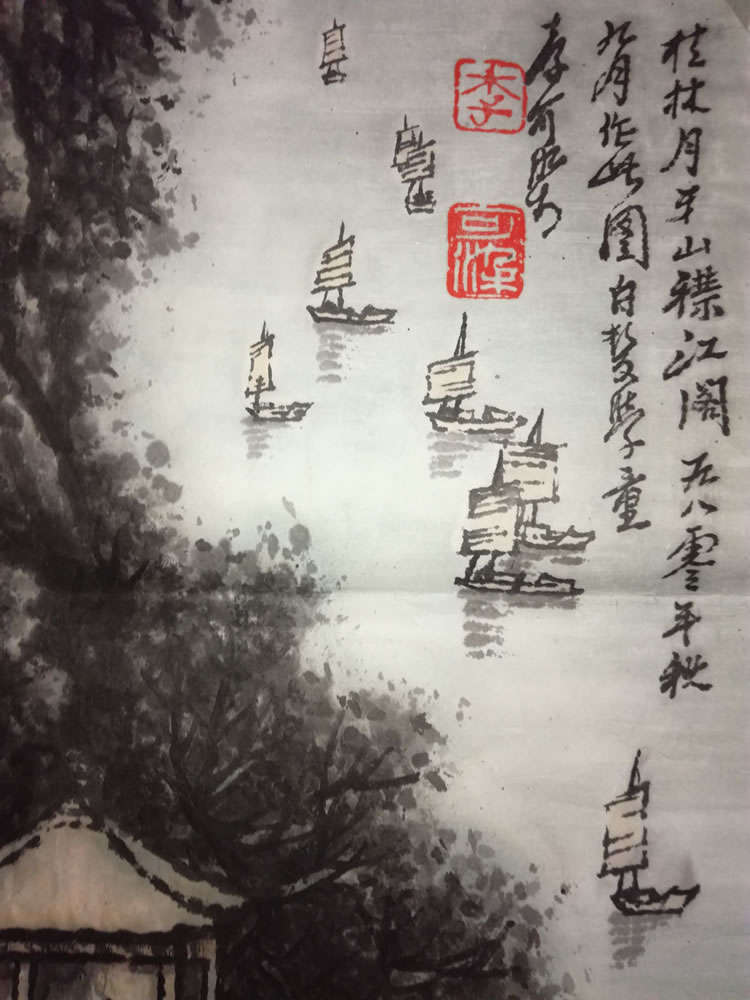 桂林月牙山襟江阁 五八零年秋
九月作此图白发学童
李可染
李
可染